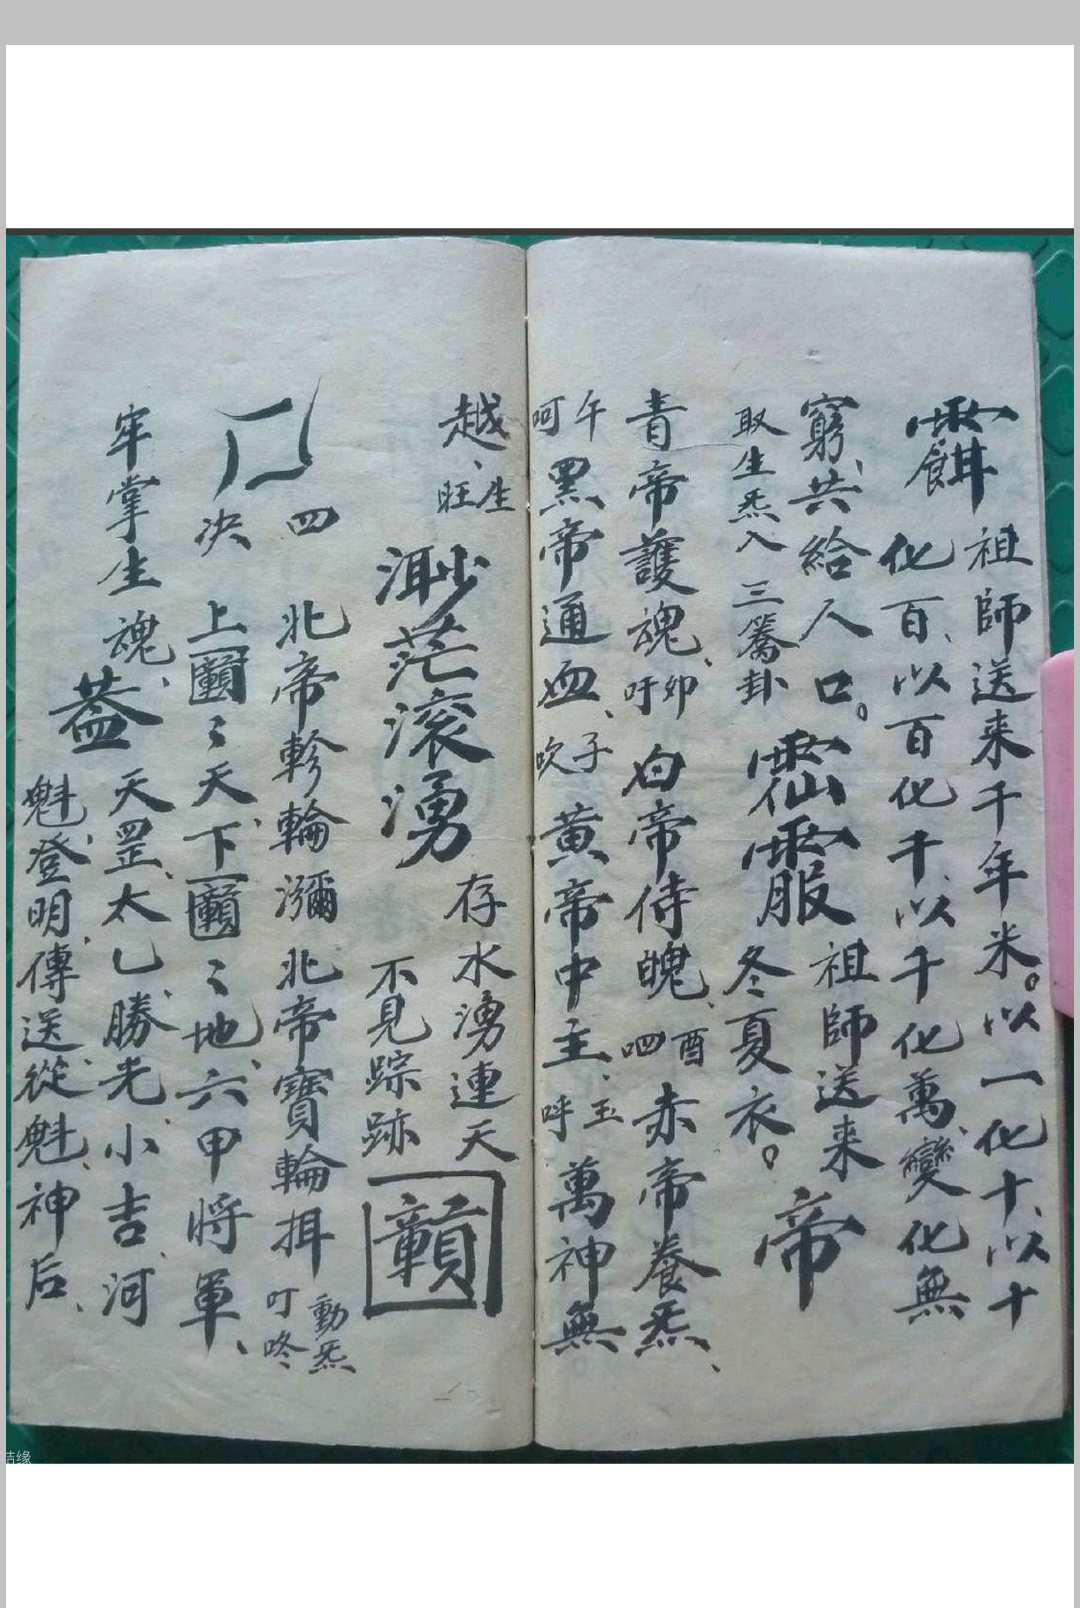 祖師送来千年米。以一化十、以十
化百、以百化千、以千化萬、變化無
窮、共給人口。
祖師送来
冬夏衣。
帝
取生炁入 三 卦
青帝護魂、卯吁 白帝侍魄、酉呬 赤帝養炁、
午呵 黑帝通血、子吹 黄帝中主、玉呼 萬神無
越、生旺
渺茫滚湧
存水湧連天
不見踪跡
四 北帝 輪 北帝寶輪 動炁叮咚
决 上 〻天、下 〻地、六甲将軍、
牢掌生魂、
蓋
天罡、太乙、勝光、小吉、河
魁、登明、傳送、從魁、神后、
结缘